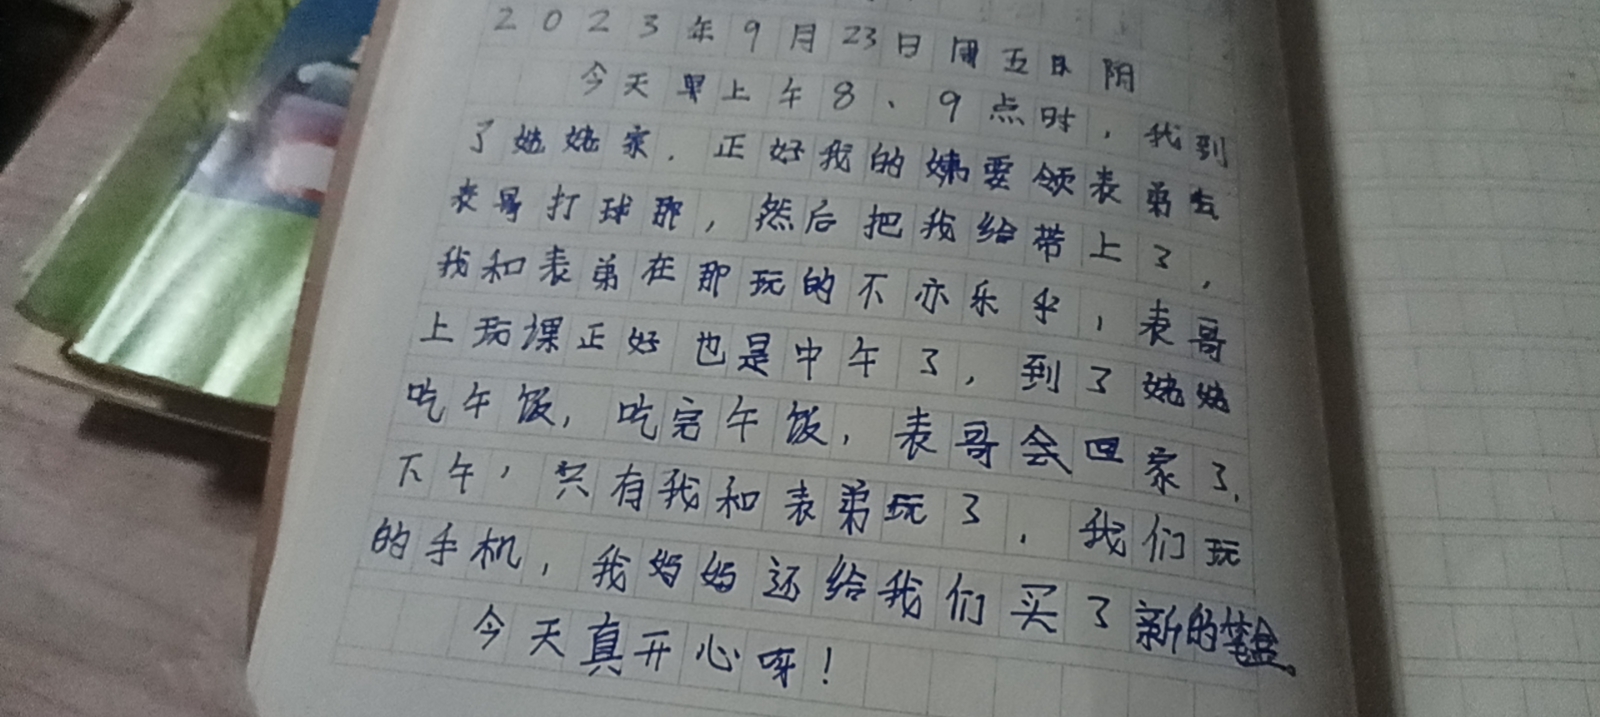 2023年9月23日周五日 阴
今天早上午8、9点时，我到
了姥姥家．正好我的姨要领表弟去
表哥打球那，然后把我给带上了，
我和表弟在那玩的不亦乐乎，表哥
上玩课正好也是中午了，到了姥姥
吃午饭，吃完午饭，表哥会回家了．
下午，只有我和表弟玩了．我们玩
的手机，我妈妈还给我们买了新的笔盒。
今天真开心呀！